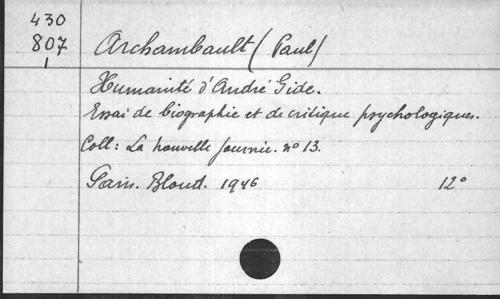 430
807 Archambault (Paul)
1
Humanité d'André Gide.
Essai de biographie et de critique psychologiques.
Coll: La nouvelle journée. nº 13.
Paris. Bloud. 1946 12º